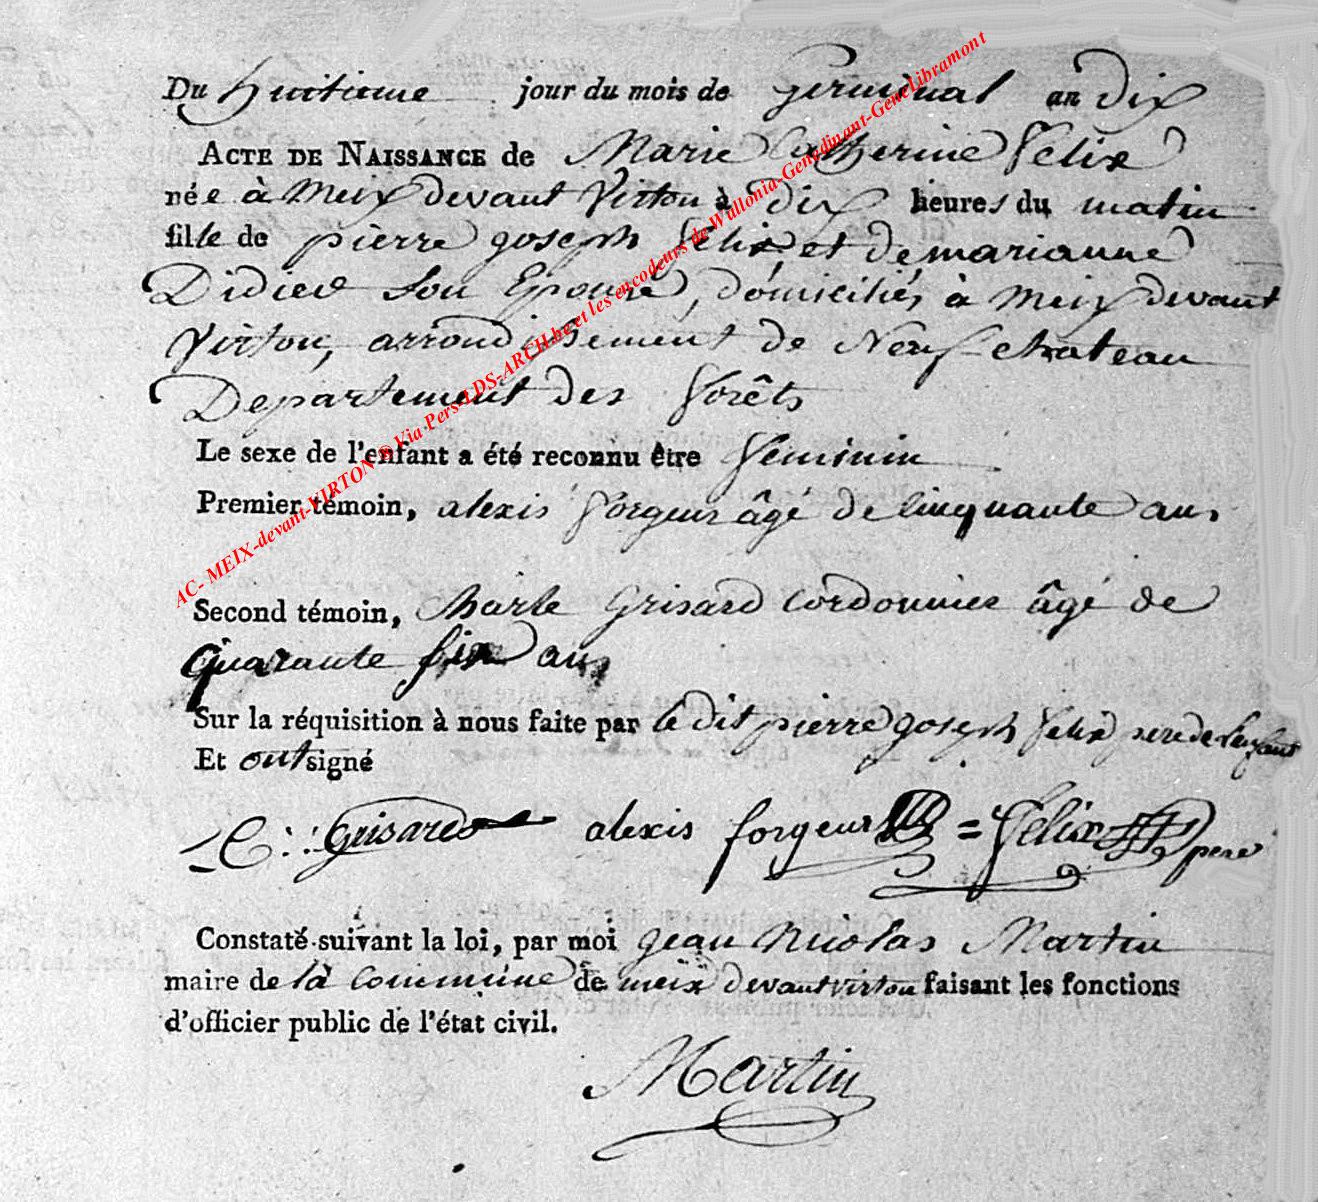 Du huitieme jour du mois de germinal an Dix
ACTE DE NAISSANCE de Marie Catherine Felix
née à Meix devant Virton à Dix heures du matin
fille de pierre goseph Felix et de marianne
Didier Son Epouse, domiciliés à Meix devant
Virton, arrondissement de Neufchateau
Departement des forêts
Le sexe de l'enfant a été reconnu être feminin
Premier témoin, alexis forgeur âgé de Cinquante ans
Second témoin, Charle Grisard Cordonnier âgé de
quarante six ans
Sur la réquisition à nous faite par le dit pierre goseph felix pere de l'enfant
Et ont signé
C : : Grisard alexis forgeur = Felix pere
Constaté suivant la loi, par moi gean Nicolas Martin
maire de la Commune de meix devant virton faisant les fonctions
d'officier public de l'état civil.
Martin
AC- MEIX-devant-VIRTON ® Via Pers-LDS-ARCH.be et les encodeurs de Wallonia-Genedinant-GeneLibramont